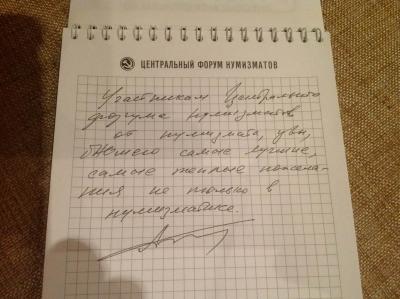 ЦЕНТРАЛЬНЫЙ ФОРУМ НУМИЗМАТОВ
Участникам Центрального
форума нумизматов
от нумизмата, увы,
бывшего самые лучшие,
самые теплые пожела-
ния не только в
нумизматике.